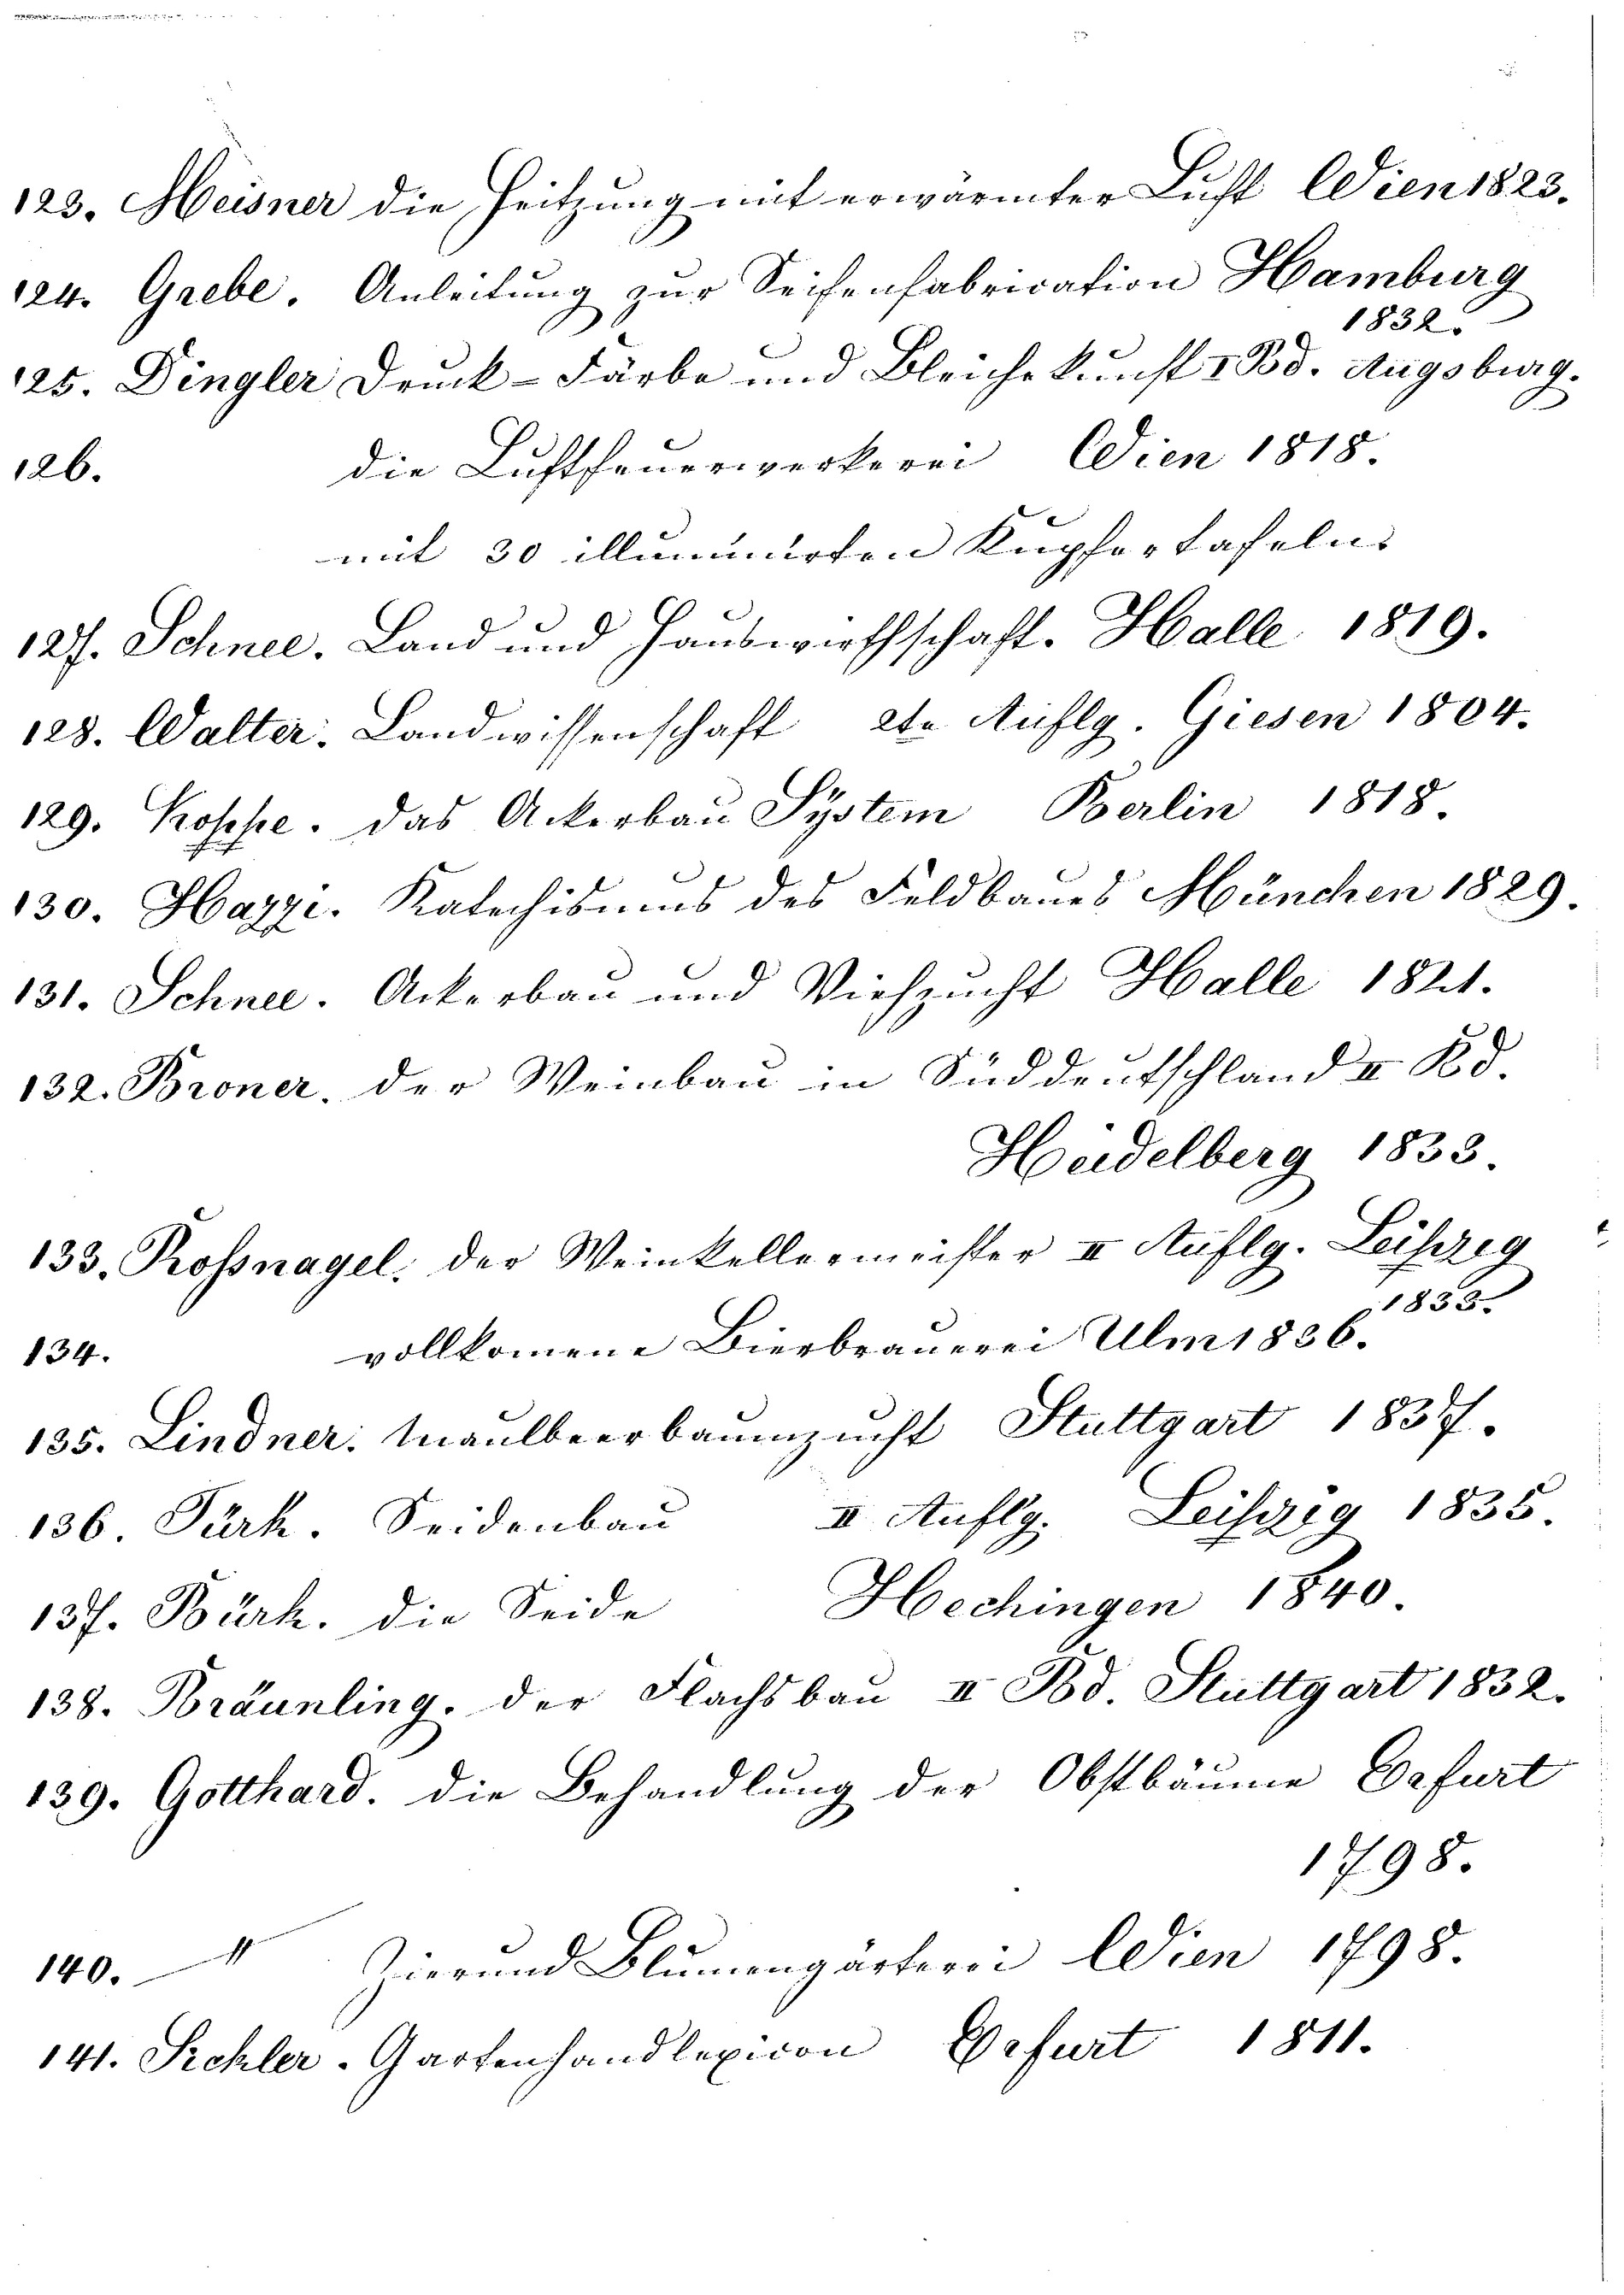 123. Meisner die Heitzung mit erwärmter Luft Wien 1823.
124. Grebe. Anleitung zur Seifenfabrication Hamburg
1832.
125. Dingler Druck-Färbe und Bleichekunst I Bd. Augsburg.
126. die Luftfeuerwerkerei Wien 1818.
mit 30 illuminirten Kupfertafeln.
127. Schnee. Land und Hauswirthschaft. Halle 1819.
128. Walter. Landwissenschaft 2te Auflg. Giesen 1804.
129. Koppe. das Ackerbau System Berlin 1818.
130. Hazzi. Katechismus des Feldbaues München 1829.
131. Schnee. Ackerbau und Viehzucht Halle 1821.
132. Broner. der Weinbau in Süddeutschland II Bd.
Heidelberg 1833.
133. Rossnagel. der Weinkellermeister II Auflg. Leipzig
1833.
134. vollkomene Bierbrauerei Ulm 1836.
135. Lindner. Maulbeerbaumzucht Stuttgart 1837.
136. Türk. Seidenbau II Auflg. Leipzig 1835.
137. Bürk. die Seide Hechingen 1840.
138. Bräunling. der Flachsbau II Bd. Stuttgart 1832.
139. Gotthard. die Behandlung der Obstbäume Erfurt
1798.
140. — " Zier und Blumengärterei Wien 1798.
141. Sickler. Gartenhandlexicon Erfurt 1811.